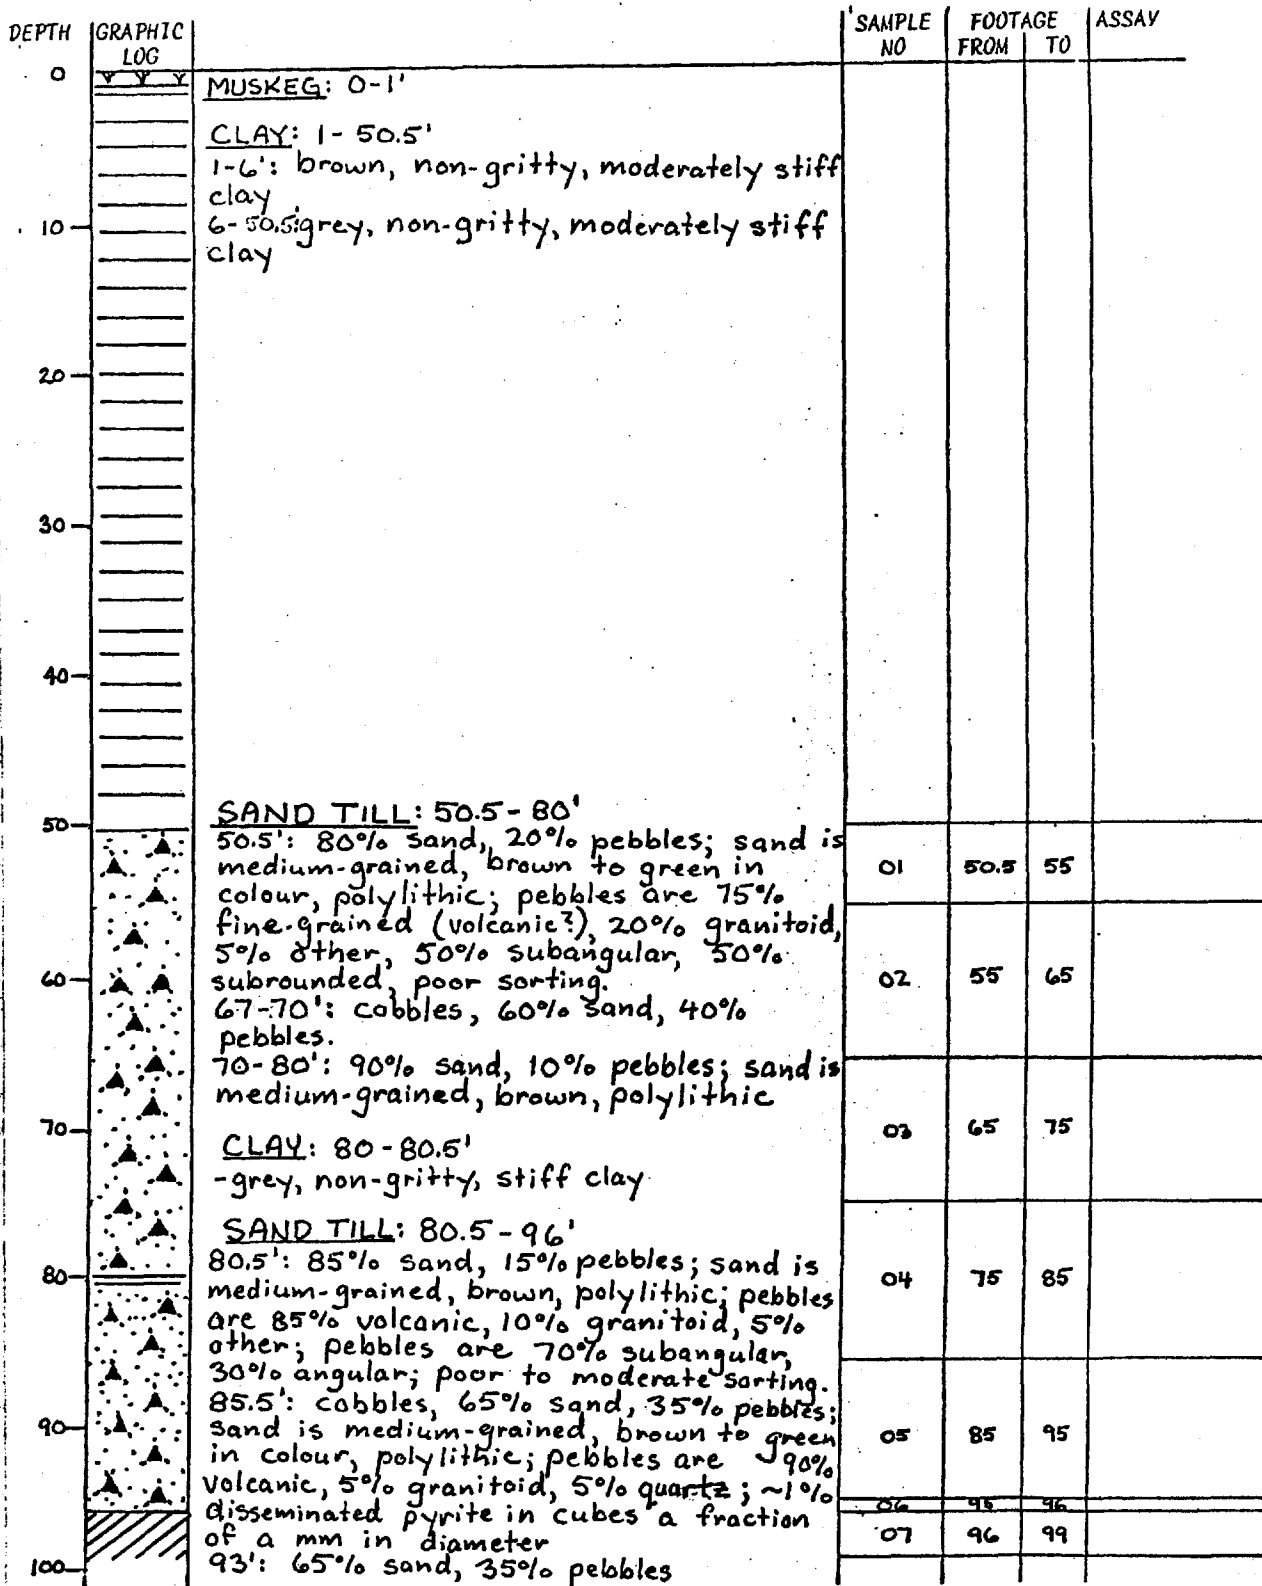 DEPTH GRAPHIC LOG SAMPLE NO FOOTAGE FROM TO ASSAY
0
MUSKEG: 0-1'
CLAY: 1-50.5'
1-6': brown, non-gritty, moderately stiff
clay
10
6-50.5: grey, non-gritty, moderately stiff
clay
20
30
40
SAND TILL: 50.5-80'
50
50.5': 80% sand, 20% pebbles; sand is
medium-grained, brown to green in
01 50.5 55
colour, polylithic; pebbles are 75%
fine-grained (volcanic?), 20% granitoid,
5% other, 50% subangular, 50%
60
subrounded, poor sorting.
02 55 65
67-70': cobbles, 60% sand, 40%
pebbles.
70-80': 90% sand, 10% pebbles; sand is
medium-grained, brown, polylithic
70
03 65 75
CLAY: 80-80.5'
-grey, non-gritty, stiff clay
SAND TILL: 80.5-96'
80.5': 85% sand, 15% pebbles; sand is
80
04 75 85
medium-grained, brown, polylithic; pebbles
are 85% volcanic, 10% granitoid, 5%
other; pebbles are 70% subangular,
30% angular; poor to moderate sorting.
85.5': cobbles, 65% sand, 35% pebbles;
90
sand is medium-grained, brown to green
05 85 95
in colour, polylithic; pebbles are ~90%
volcanic, 5% granitoid, 5% quartz; ~1%
06 95 96
disseminated pyrite in cubes a fraction
of a mm in diameter
07 96 99
100
93': 65% sand, 35% pebbles